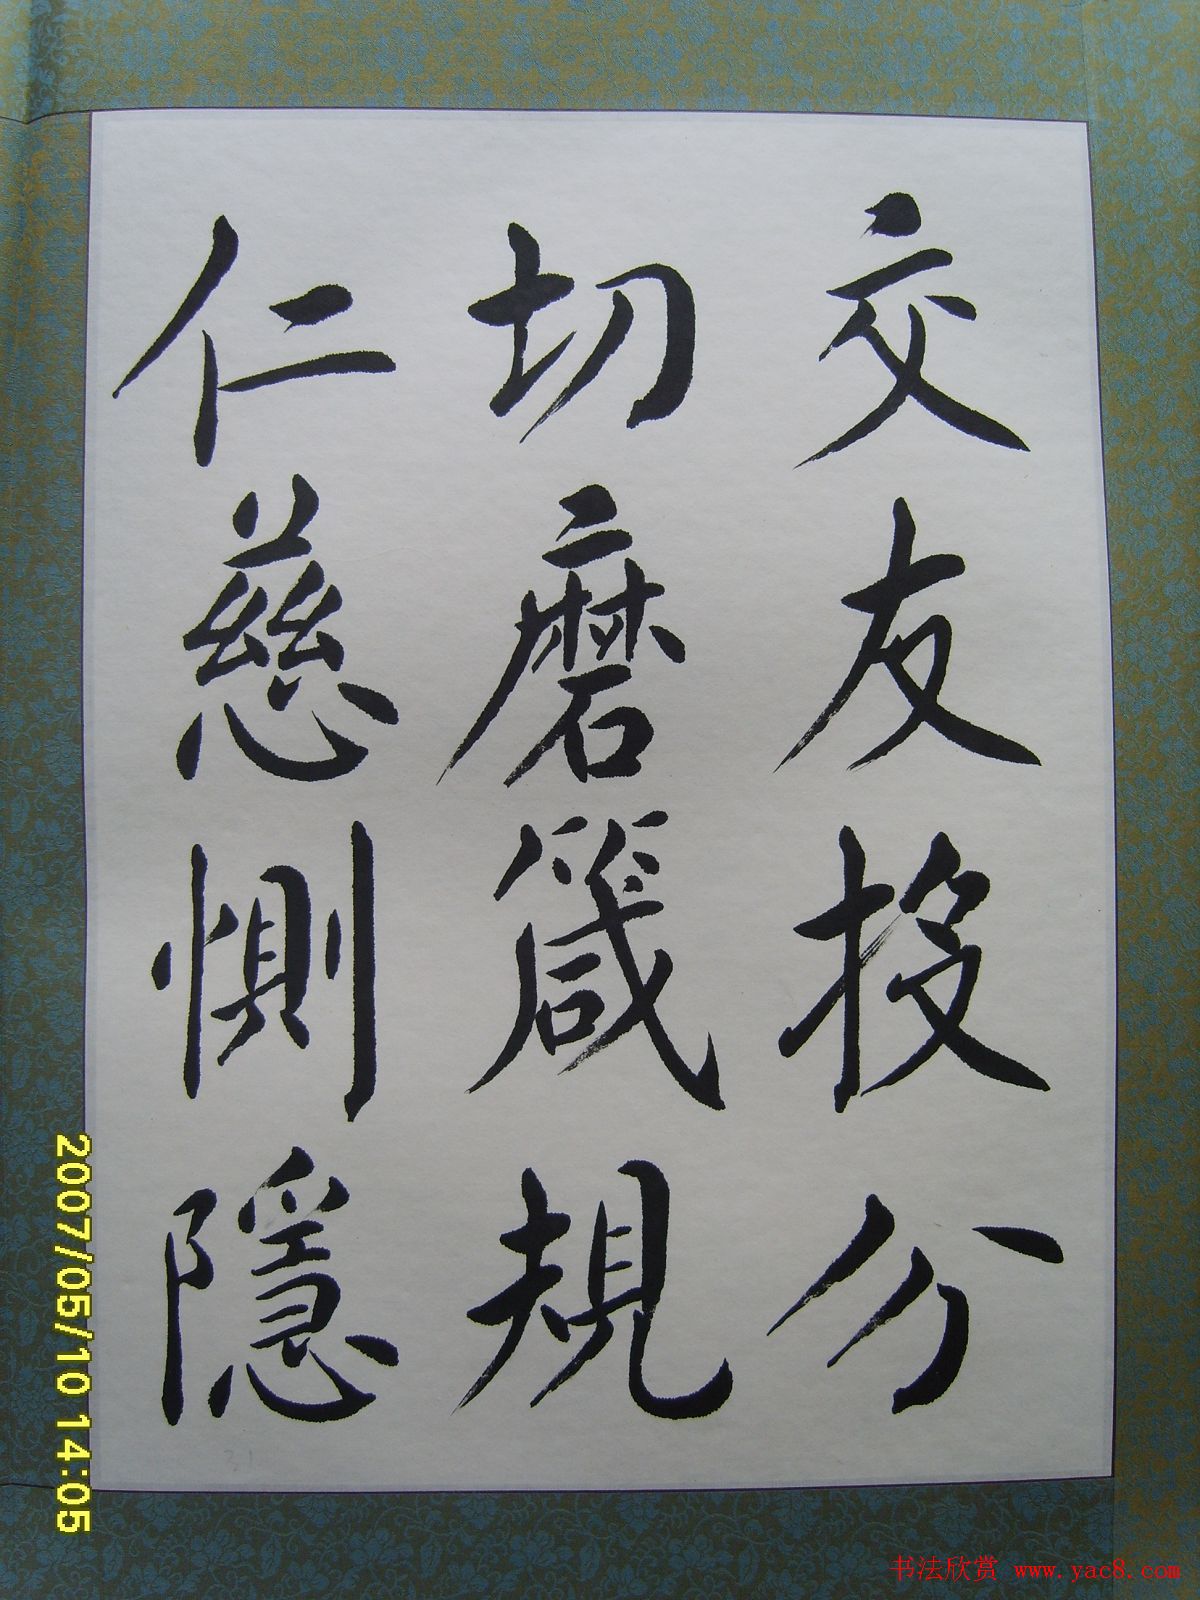 交友投分
切磨箴規
仁慈惻隱
2007/05/10 14:05
书法欣赏 www.yac8.com